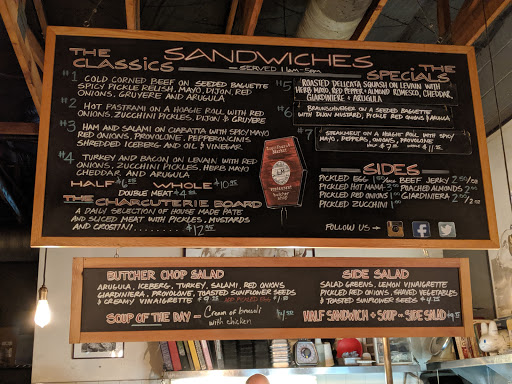 SANDWICHES
THE CLASSICS
SERVED 11am-5pm
THE SPECIALS
#1 COLD CORNED BEEF ON SEEDED BAGUETTE
SPICY PICKLE RELISH, MAYO, DIJON, RED
ONIONS, GRUYERE AND ARUGULA
#2 HOT PASTRAMI ON A HOAGIE ROLL WITH RED
ONIONS, ZUCCHINI PICKLES, DIJON & GRUYERE
#3 HAM AND SALAMI ON CIABATTA WITH SPICY MAYO
RED ONIONS, PROVOLONE, PEPPERONCINIS
SHREDDED ICEBERG AND OIL & VINEGAR
#4 TURKEY AND BACON ON LEVAIN WITH RED
ONIONS, ZUCCHINI PICKLES, HERB MAYO
CHEDDAR AND ARUGULA
HALF WHOLE
DOUBLE MEAT
THE CHARCUTERIE BOARD
A DAILY SELECTION OF HOUSE MADE PATE
AND SLICED MEAT WITH PICKLES, MUSTARDS
AND CROSTINI
#5 ROASTED DELICATA SQUASH ON LEVAIN WITH
HERB MAYO, RED PEPPER & ALMOND ROMESCO, CHEDDAR,
GIARDINIERE & ARUGULA
#6 BRAUNSCHWEIGER ON A SEEDED BAGUETTE
WITH DIJON MUSTARD, PICKLE RED ONIONS & ARUGULA
#7 ON A HOAGIE ROLL WITH SPICY
MAYO, PEPPERS, ONIONS, PROVOLONE
SIDES
PICKLED EGG BEEF JERKY
PICKLED HOT MAMA POACHED ALMONDS
PICKLED RED ONIONS GIARDINIERA
PICKLED ZUCCHINI
FOLLOW US →
BUTCHER CHOP SALAD
ARUGULA, ICEBERG, TURKEY, SALAMI, RED ONIONS
GIARDINIERA, PROVOLONE, TOASTED SUNFLOWER SEEDS
& CREAMY VINAIGRETTE ADD PICKLED EGG
SOUP OF THE DAY Cream of broccoli
with chicken
SIDE SALAD
SALAD GREENS, LEMON VINAIGRETTE
PICKLED RED ONIONS, SHAVED VEGETABLES
& TOASTED SUNFLOWER SEEDS
HALF SANDWICH + SOUP OR SIDE SALAD